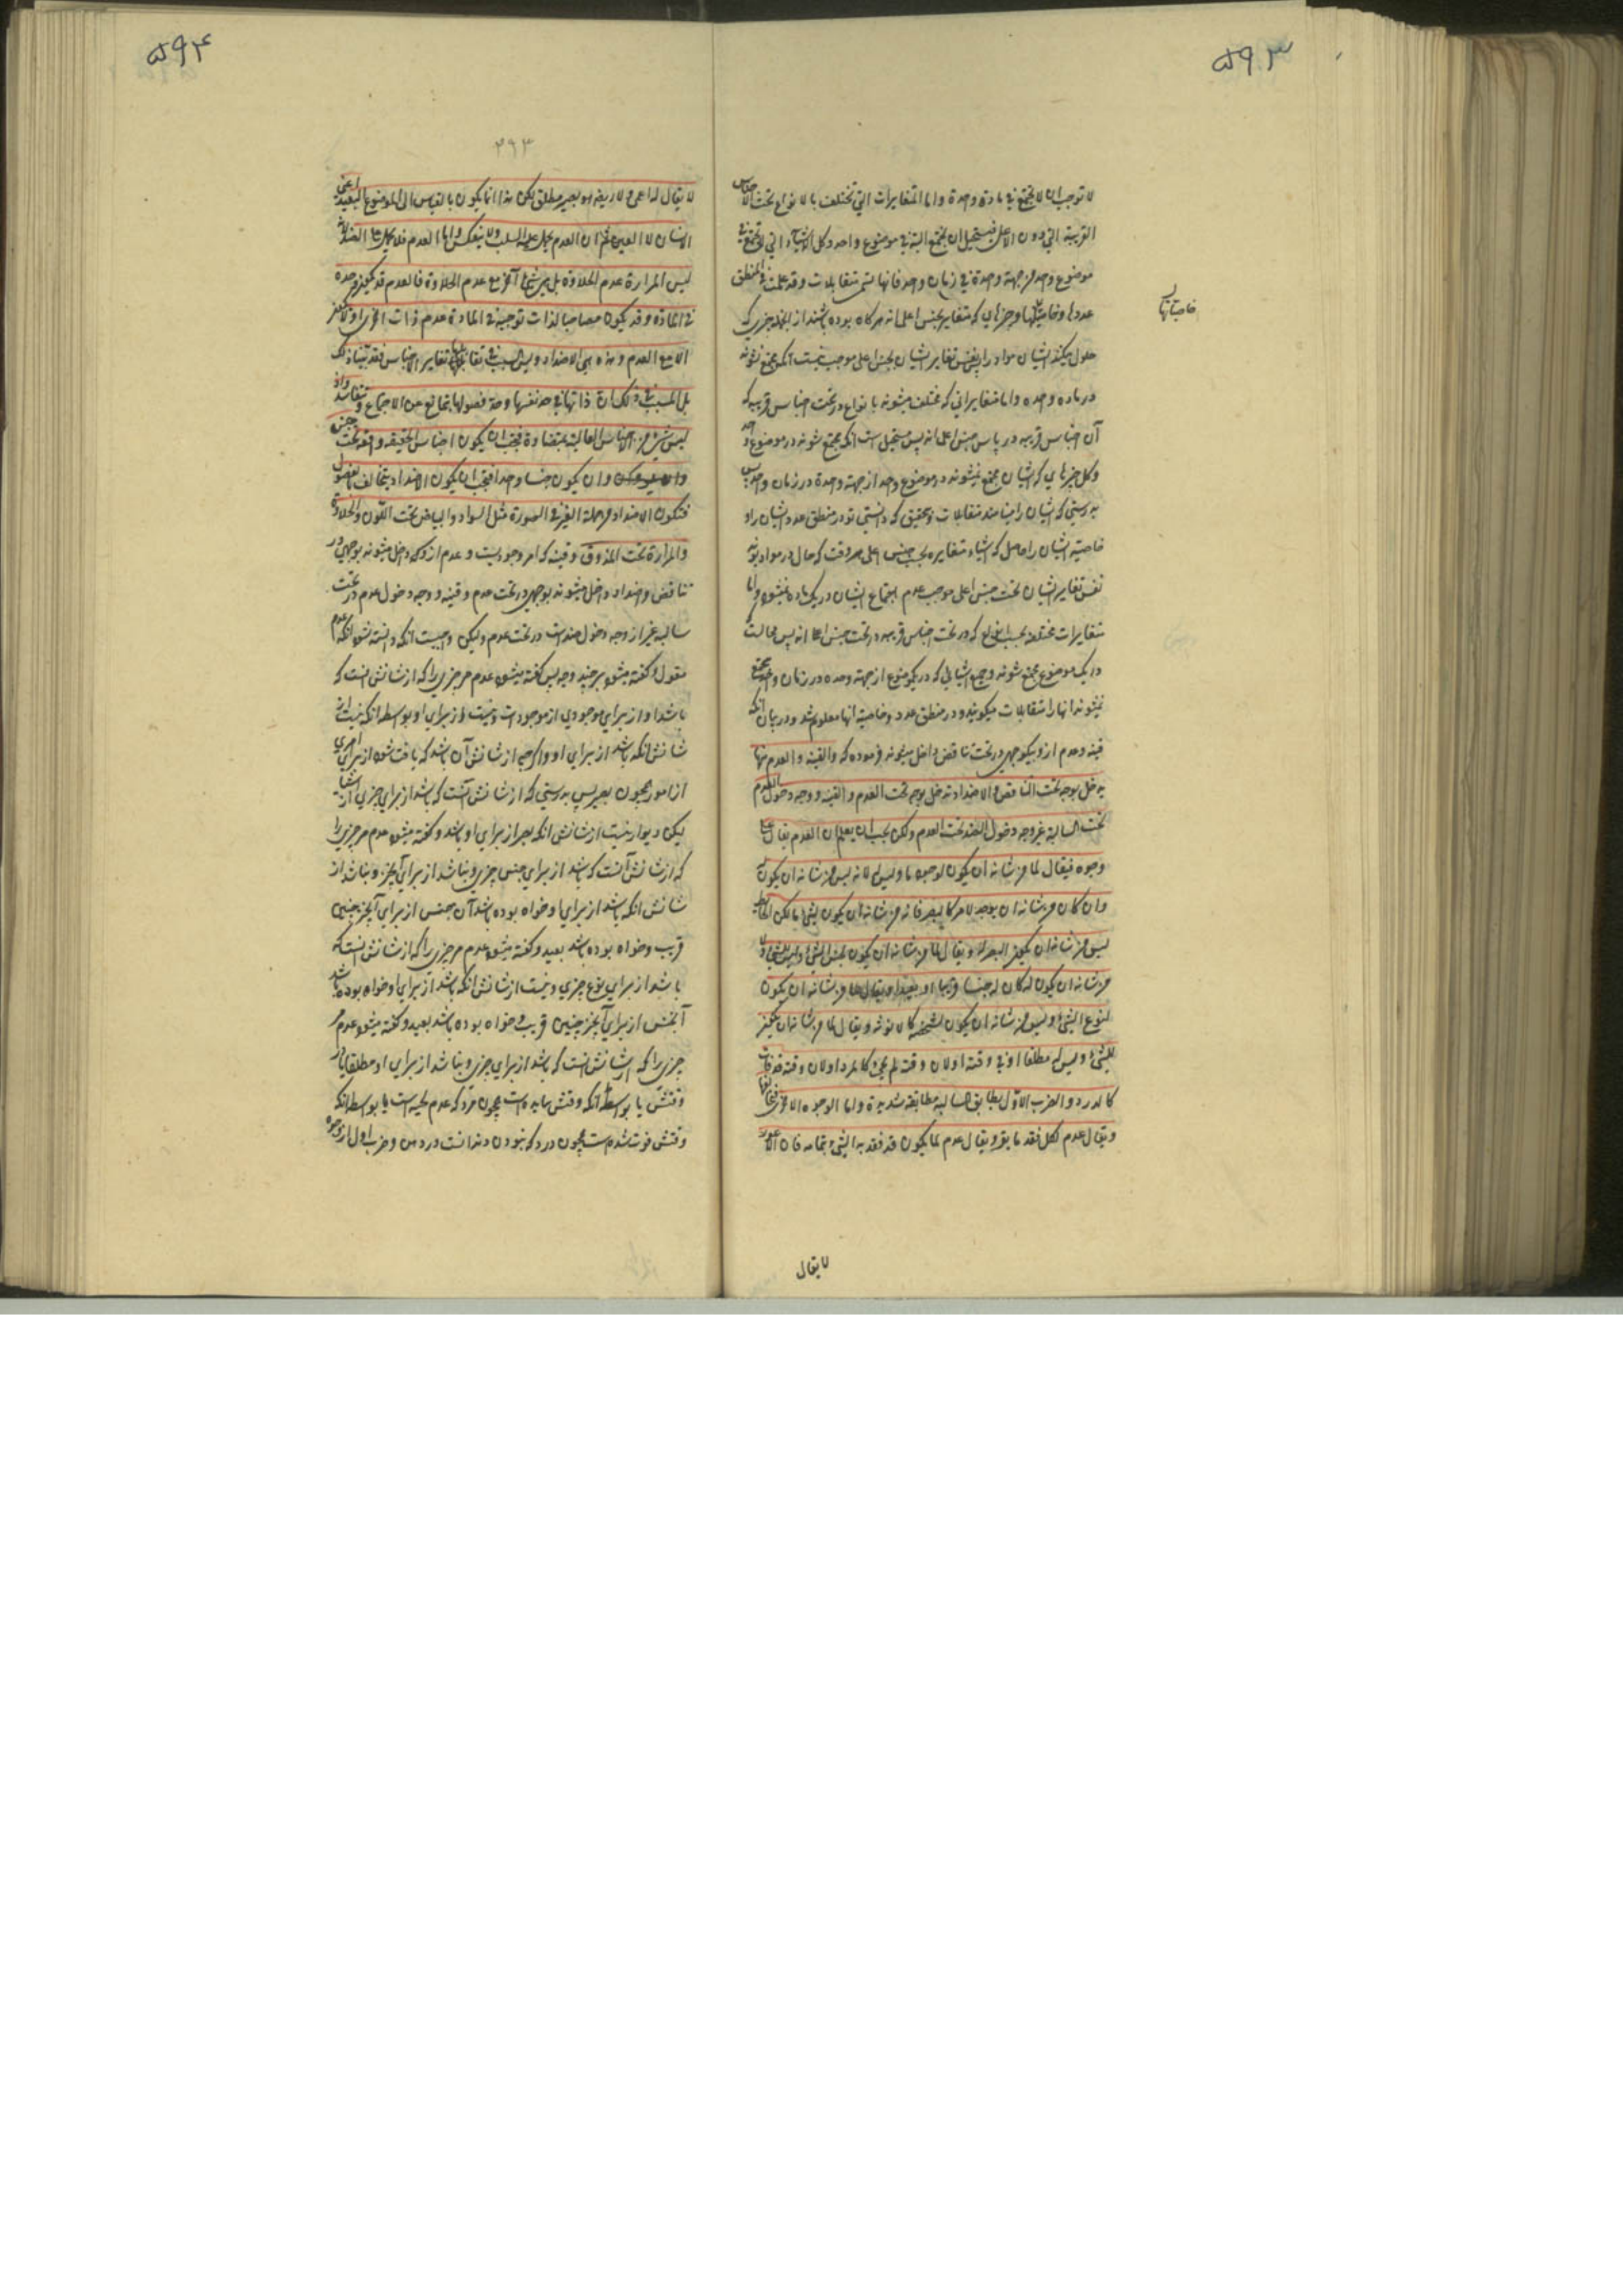 ۵۹۳
لا توجب ان لا تجتمع فی مادة واحدة واما المتغایرات التی تختلف بالانواع تحت الاجناس
القریبة التی دون الاعلی فیستحیل ان تجتمع البتة فی موضوع واحد وکل الاشیاء التی لا تجتمع فی
موضوع واحد من جهة واحدة فی زمان واحد فانها تسمی متقابلات وقد علمت فی المنطق
عددها وخاصیاتها وچیزهایی که متغایر بجنس اعلی اند هرگاه بوده باشند از چیزی که
حلول میکند ایشان مواد را پس نفس تغایر ایشان بجنس اعلی موجب نیست آنکه جمع نشوند
در ماده واحده واما متغایراتی که مختلف میشوند بانواع در تحت اجناس قریبه که
آن اجناس قریبه در پایین جنس اعلی اند پس مستحیل است آنکه مجتمع شوند در موضوع واحد
وکل چیزهایی که ایشان مجتمع نمیشوند در موضوع واحد از جهة واحدة در زمان واحد پس
بدرستی که ایشان را مینامند متقابلات وبتحقیق که دانستی تو در منطق عدد ایشان را و
خاصیة ایشان را حاصل که اشیاء متغایره بحسب جنس اعلی هر وقت که حال در مواد بوند
نفس تغایر ایشان تحت جنس اعلی موجب عدم اجتماع ایشان در یک ماده نمیشود واما
متغایرات مختلفه بحسب انواع که در تحت اجناس قریبه در تحت جنس اعلی اند پس محالست
در یک موضوع مجتمع شوند وجمیع اشیایی که در یک موضوع از جهة وحده در زمان واحد مجتمع
نمیشوند انها را متقابلات میگویند ودر منطق عدد وخاصیة انها معلوم شد ودر بیان آنکه
قینه وعدم از او بیکوجهی در تحت تناقض داخل میشوند فرموده که والقینة والعدم منها
یدخل بوجه تحت التناقض والاضداد تدخل بوجه تحت العدم والقینة ووجه دخول العدم
تحت السالبة غیر وجه دخول الضد تحت العدم ولکن یجب ان یعلم ان العدم یقال علی
وجوه فیقال لما من شانه ان یکون لوجود ما ولیس له لانه لیس من شانه ان یکون له
وان کان من شانه ان یوجد لامر کالبصر فانه من شانه ان یکون لشیء ما لکن الحایط
لیس من شانه ان یکون البصر له ویقال لما من شانه ان یکون لجنس الشیء ولیس للشیء ولا
من شانه ان یکون له کان له جنسا قریبا او بعیدا ویقال لما من شانه ان یکون
لنوع الشیء ولیس من شانه ان یکون لشخصه کالانوثة ویقال لما من شانه ان یکون
للشیء ولیس له مطلقا او فی وقته او لان وقته لم یجیء کالمرد او لان وقته قد فات
کالدرد والضرب الاول یطابق السالبة مطابقة شدیدة واما الوجوه الاخر فیخالفها
ویقال عدم لکل فقد بالقسر ویقال عدم لما یکون قد فقد به الشیء بتمامه فان الاعور
لا یقال
خاصیاتها
۵۹۴
۲۹۳
لا یقال له اعمی ولا ریضه هو بصیر مطلق لکن هذا انما یکون بالقیاس الی الموضوع البعید اعنی
الانسان لا العین ثم ان العدم یحمل علیه السلب ولا ینعکس واما العدم فلا یحمل علی الضد لانه
لیس المرارة عدم الحلاوة بل هی شیء آخر مع عدم الحلاوة فالعدم قد یکون وحده
فی المادة وقد یکون مصاحبا لذات توجب فی المادة عدم ذات اخری او لا یکون
الا مع العدم وهذه هی الاضداد ولیس السبب فی تقابلها تغایر الاجناس فقد بینا ذلک
بل السبب فی ذلک ان ذاتها فی حد نفسها وحد فصولها یتمانع عن الاجتماع وتتفاسد واذ
لیس شیء من الاجناس العالیة بمتضادة فیجب ان یکون اجناس الحقیقة واقعة تحت جنس
وان یکون جنسا واحدا فیجب ان یکون الاضداد یتخالف بالفصول
فتکون الاضداد من جملة الغیر فی الصورة مثل السواد والبیاض تحت اللون والحلاوة
والمرارة تحت المذوق وقینه که امر وجودیست وعدم از او که داخل میشوند بوجهی در
تناقض واضداد داخل میشوند بوجهی در تحت عدم وقینه ووجه دخول عدم در تحت
سالبه غیر از وجه دخول ضد است در تحت عدم ولیکن واجبست آنکه دانسته شود آنکه عدم
مقول وگفته میشود بر چند وجه پس گفته میشود عدم مر چیزی را که از شانش انست که
باشد او از برای موجودی از موجودات ونیست از برای او بواسطه آنکه نیست از
شانش آنکه باشد از برای او واگرچه از شانش آن باشد که یافت شود از برای امری
از امور همچون بصر پس بدرستی که از شانش آنست که باشد از برای چیزی از اشیا
لیکن دیوار نیست از شانش آنکه بصر از برای او باشد وگفته میشود عدم مر چیزی را
که از شانش آنست که باشد از برای جنس چیزی ونباشد از برای آنچیز ونباشد از
شانش آنکه باشد از برای او خواه بوده باشد آن جنس از برای آنچیز جنس
قریب وخواه بوده باشد بعید وگفته میشود عدم مر چیزی را که از شانش انست که
باشد از برای نوع چیزی ونیست از شانش آنکه باشد از برای او خواه بوده باشد
آنجنس از برای آنچیز جنس قریب وخواه بوده باشد بعید وگفته میشود عدم مر
چیزی را که از شانش انست که باشد از برای چیزی ونباشد از برای او مطلقا یا در
وقتش یا بواسطه آنکه وقتش نیامده است همچون مرد که عدم لحیه است یا بواسطه آنکه
وقتش فوت شده است همچون درد که نبودن دندانست در دهن وضرب اول از وجوه